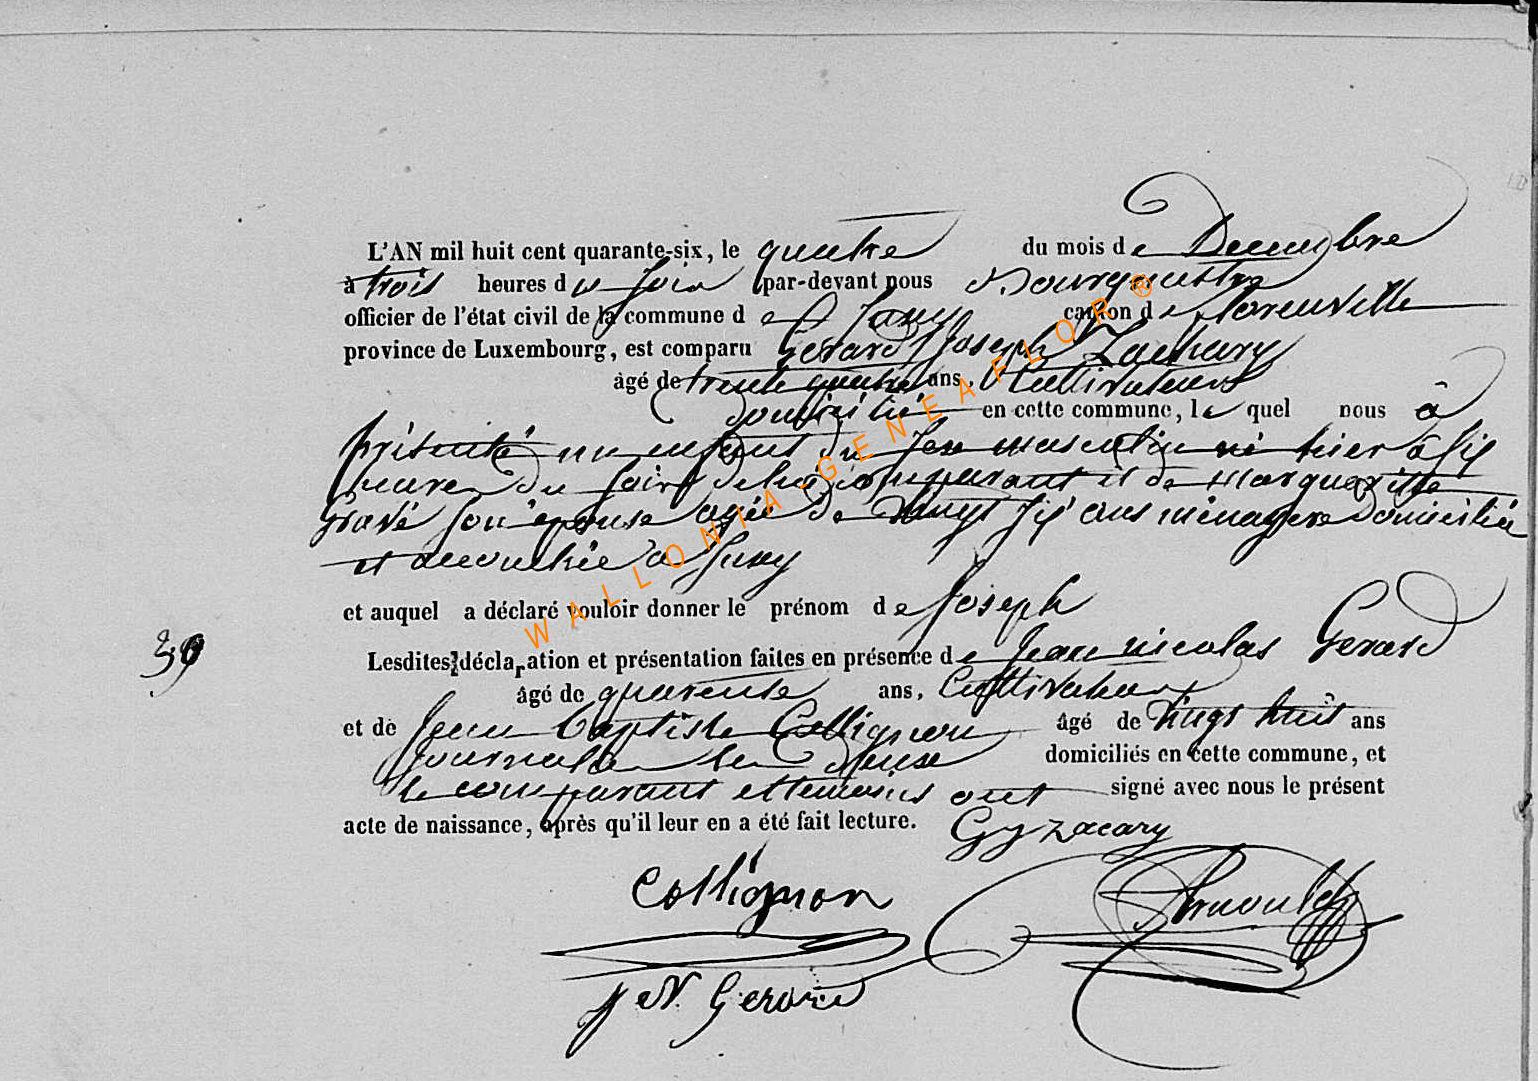 L'AN mil huit cent quarante-six, le quatre du mois de Decembre
à trois heures du soir par-devant nous Bourgmestre
officier de l'état civil de la commune de Suxy canton de florenville
province de Luxembourg, est comparu Gerard Joseph Zachary
âgé de trente quatre ans, Cultivateur
domicilié en cette commune, le quel nous à
présenté un enfant du sexe masculin né hier à six
heures du soir de lui comparant et de marguerite
gravé son épouse agée de vingt six ans ménagere domiciliée
et accouchée à Suxy
et auquel a déclaré vouloir donner le prénom de Joseph
39
Lesdites déclaration et présentation faites en présence de Jean nicolas Gerard
âgé de quarente ans, Cultivateur
et de Jean Baptiste Collignon âgé de vingt huit ans
journalier domiciliés en cette commune, et
le comparant et temoins ont signé avec nous le présent
acte de naissance, après qu'il leur en a été fait lecture. G J zacary
Collignon Arnould
J N. Gerard
WALLONIA-GENEAFLOR ®